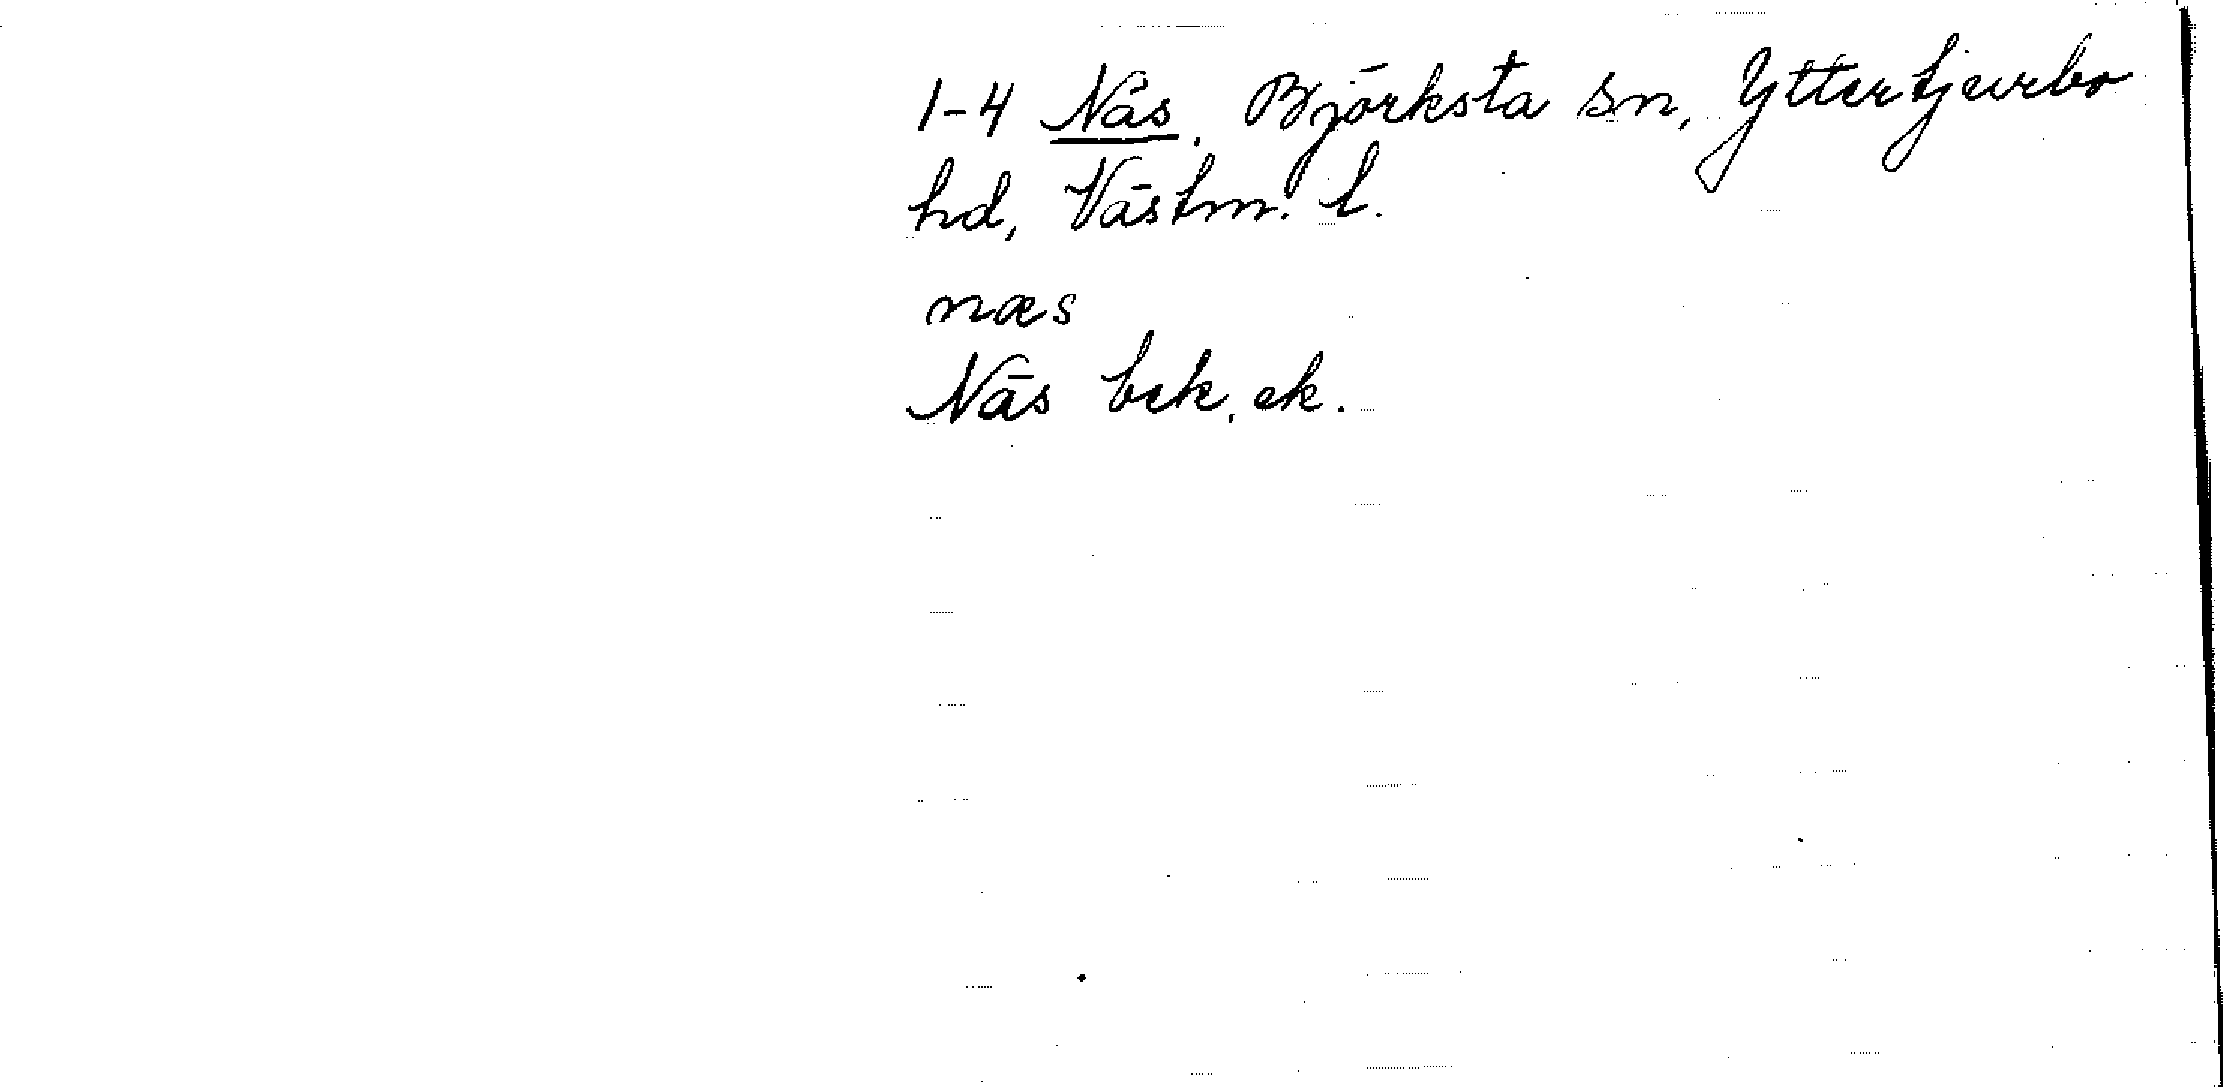 1-4 Näs, Björksta sn, Yttertjurbo
hd, Västm. l.
næs
Näs bek. ek.